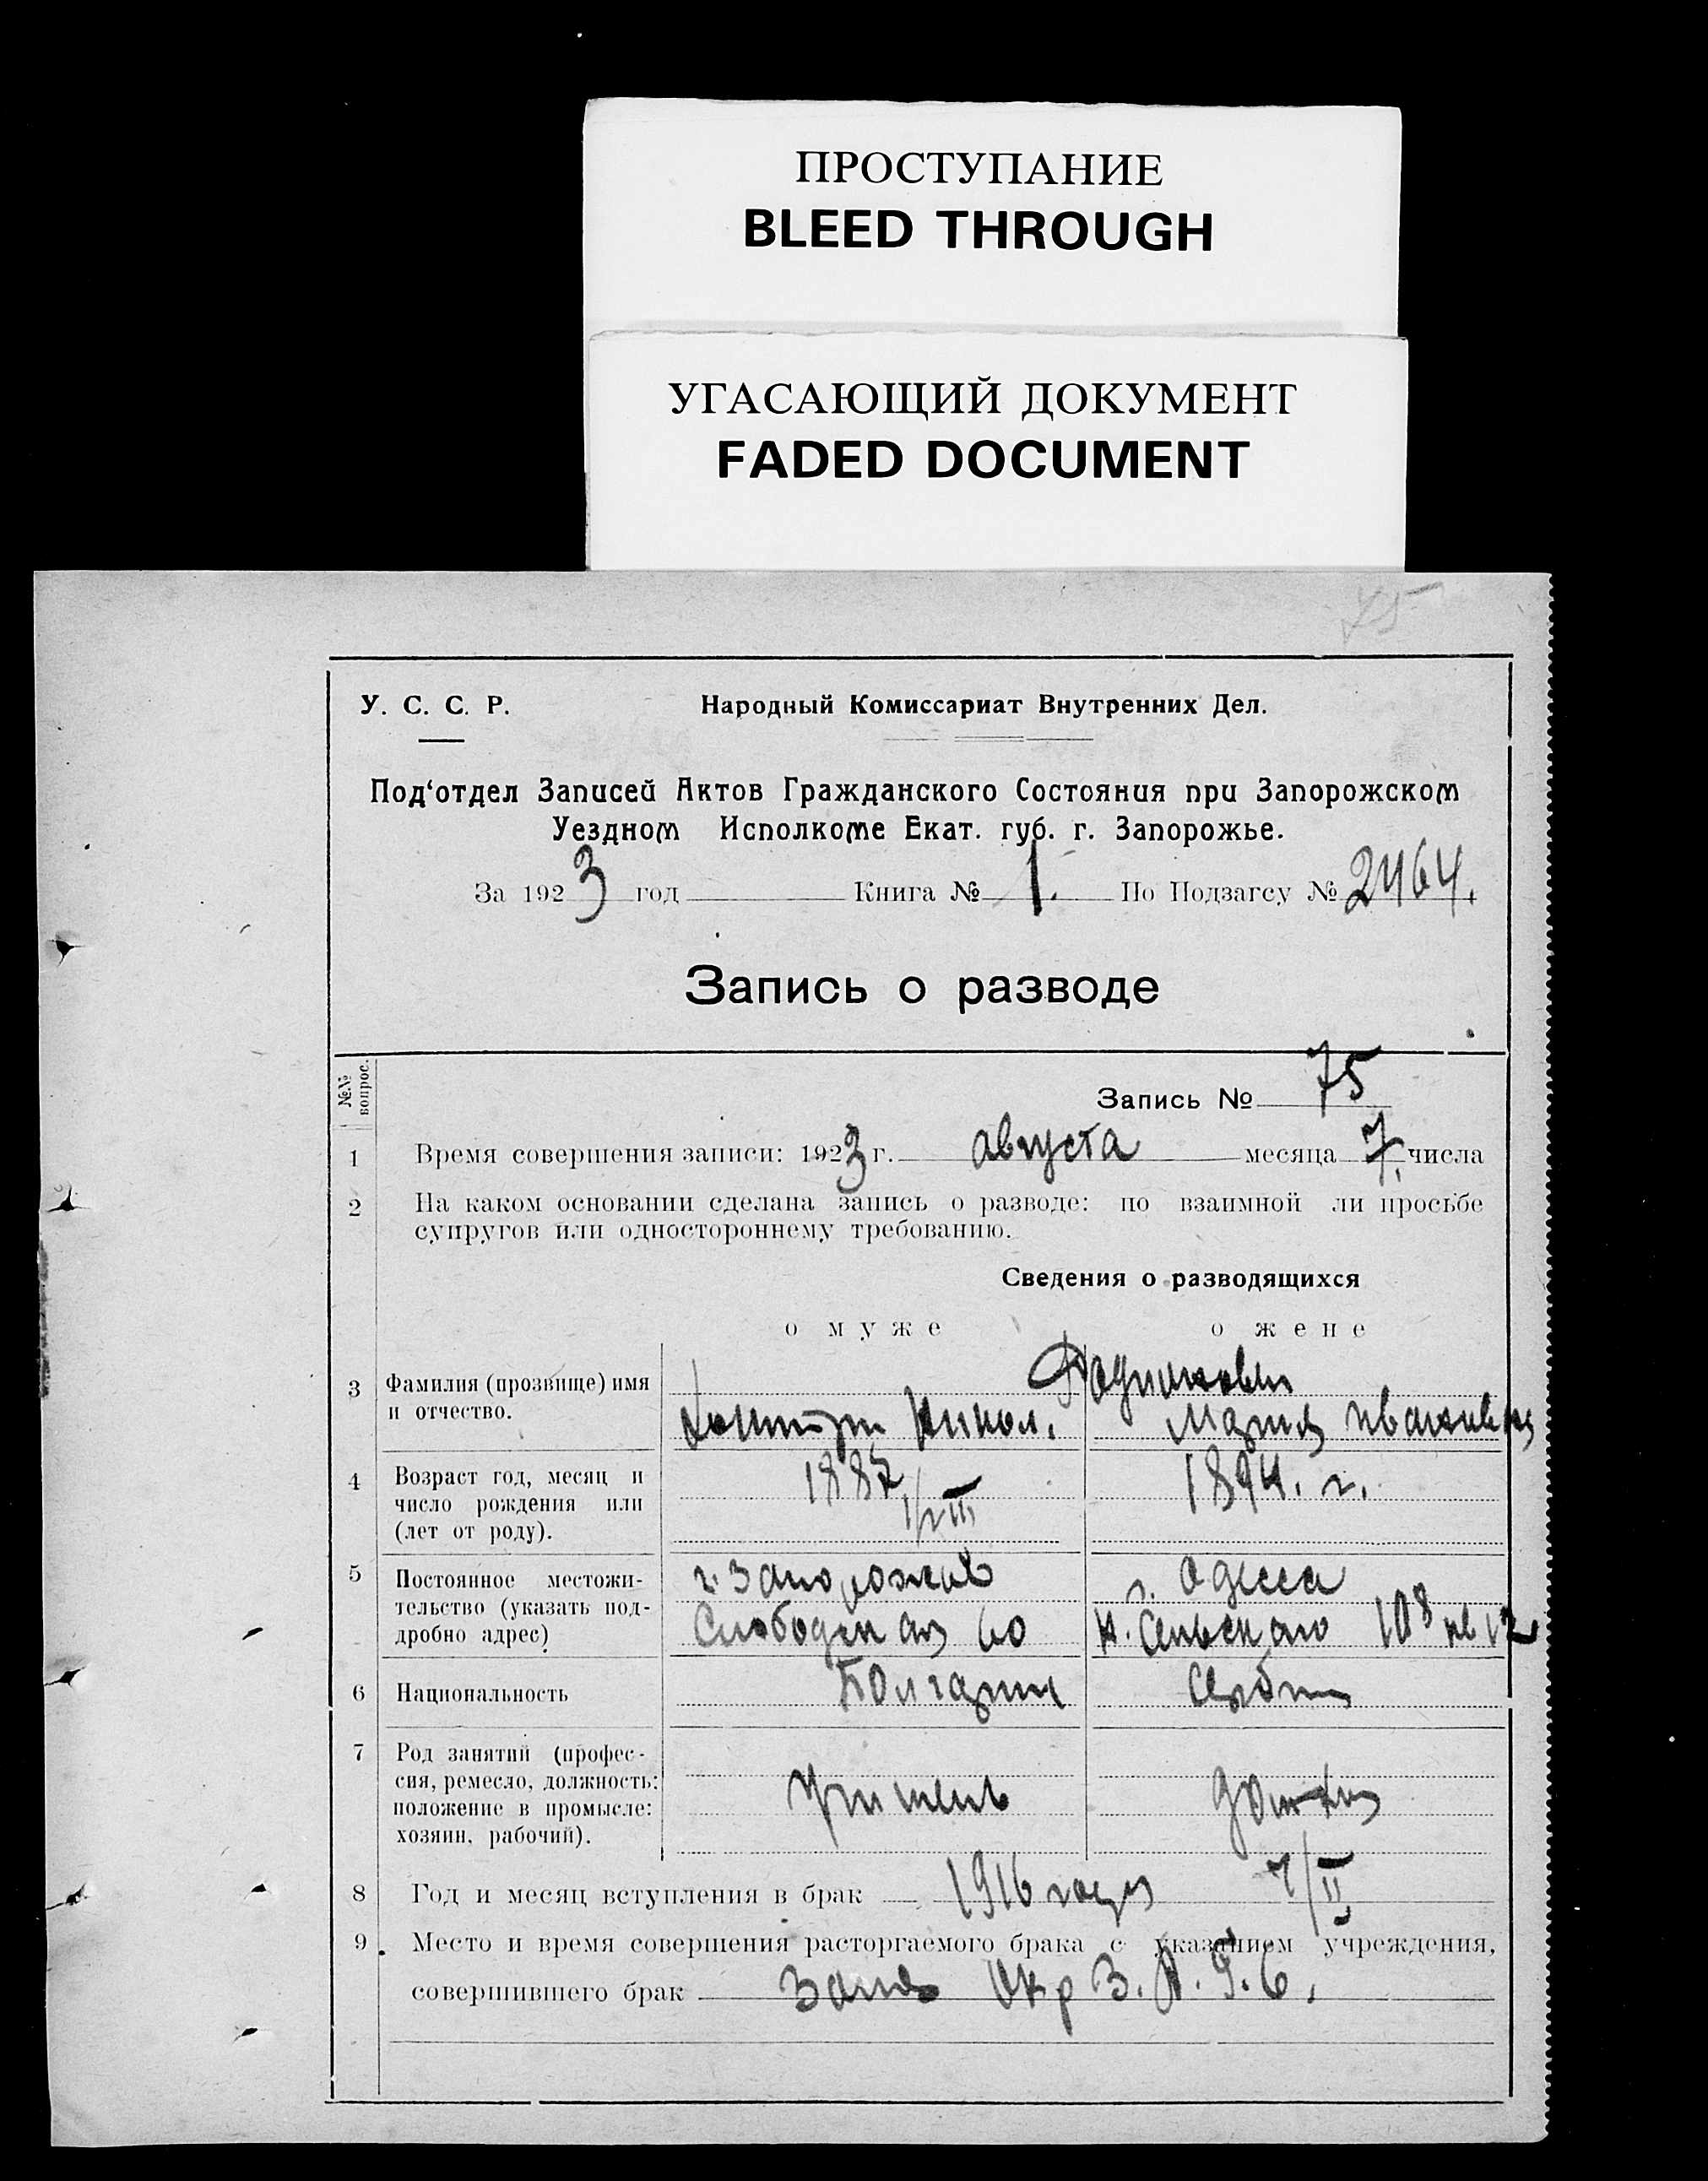 ПРОСТУПАНИЕ
BLEED THROUGH
УГАСАЮЩИЙ ДОКУМЕНТ
FADED DOCUMENT
75
У. С. С. Р. Народный Комиссариат Внутренних Дел.
Под‘отдел Записей Актов Гражданского Состояния при Запорожском
Уездном Исполкоме Екат. губ. г. Запорожье.
За 1923 год Книга № 1. По Подзагсу № 2464.
Запись о разводе
№№ вопрос.
Запись № 75
1 Время совершения записи: 1923 г. августа месяца 7. числа
2 На каком основании сделана запись о разводе: по взаимной ли просьбе
супругов или одностороннему требованию.
Сведения о разводящихся
о муже о жене
3 Фамилия (прозвище) имя
и отчество. Никол. Мария Ивановна
4 Возраст год, месяц и 1887 1894. г.
число рождения или
(лет от роду).
5 Постоянное местожи- г. Запорожье г. Одесса
тельство (указать под- Слободская 60 108 кв 12
дробно адрес)
6 Национальность Болгарин Сербка
7 Род занятий (профес-
сия, ремесло, должность:
положение в промысле:
хозяин, рабочий).
8 Год и месяц вступления в брак 1916 года 7/II
9. Место и время совершения расторгаемого брака с указанием учреждения,
совершившего брак Окр З. А. Г. С.